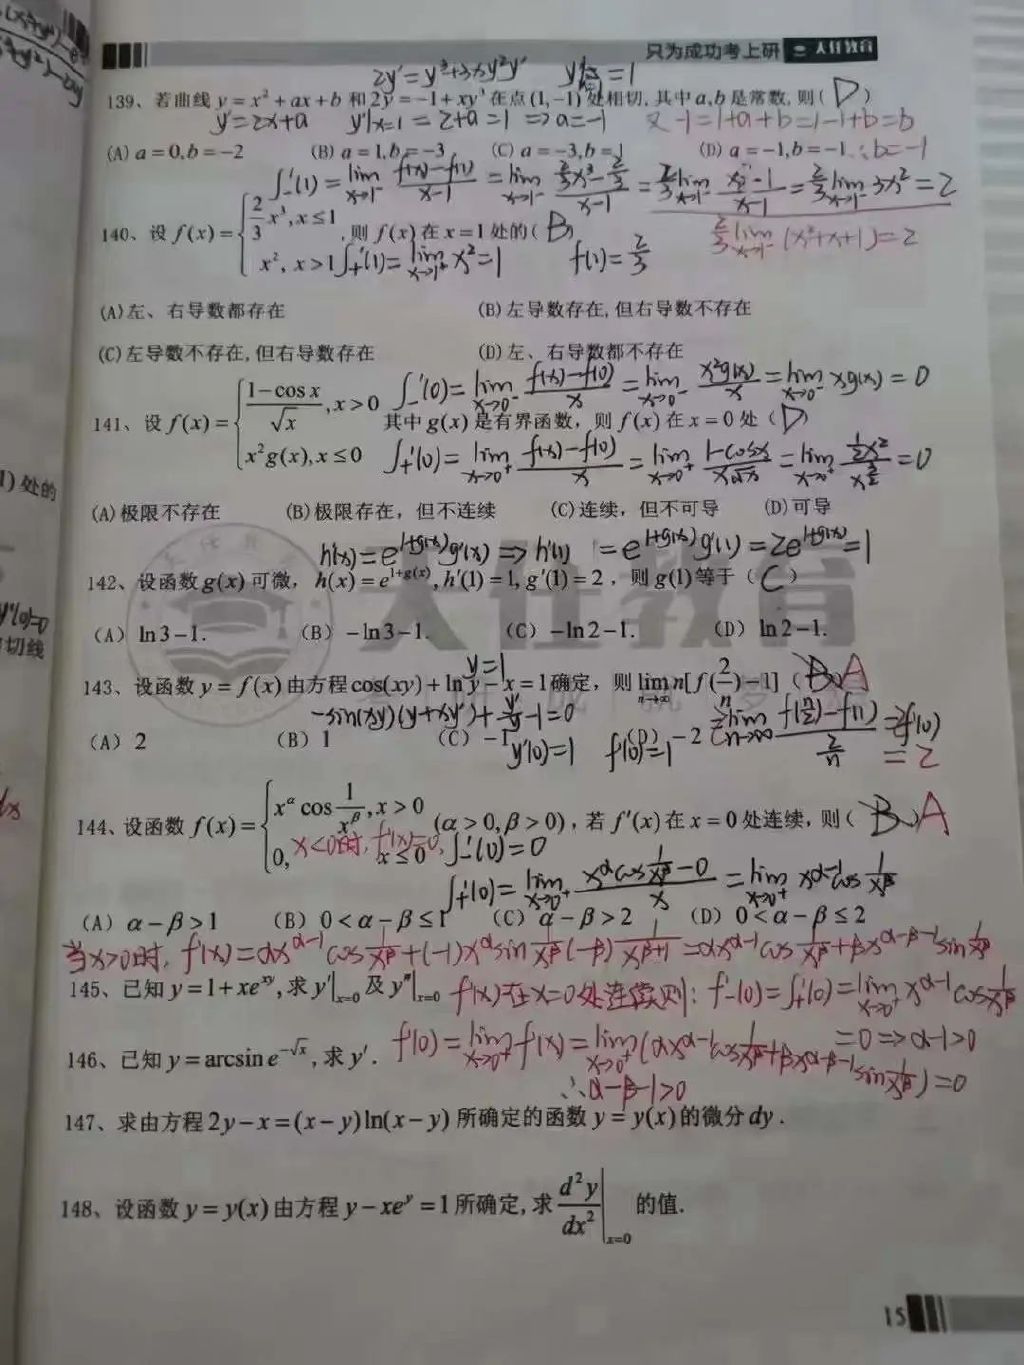 只为成功考上研 天任教育
2y'=y³+3xy²y' y'|=1
139、若曲线 y=x²+ax+b 和 2y=-1+xy³ 在点(1,-1)处相切,其中a,b是常数,则( D )
y'=2x+a y'|x=1 =2+a=1 ⇒a=-1 又-1=1+a+b=1-1+b=b
(A) a=0,b=-2 (B) a=1,b=-3 (C) a=-3,b=1 (D) a=-1,b=-1 ∴b=-1
f₋'(1)=lim x→1⁻ (f(x)-f(1))/(x-1) =lim x→1⁻ (2/3x³-2/3)/(x-1) =2/3 lim x→1⁻ (x³-1)/(x-1) =2/3 lim x→1⁻ 3x²=2
2/3 lim x→1⁻ (x²+x+1)=2
140、设 f(x)={ 2/3 x³, x≤1 ,则 f(x)在 x=1 处的( B )
x², x>1 f₊'(1)=lim x→1⁺ x²=1 f(1)=2/3
(A)左、右导数都存在 (B)左导数存在,但右导数不存在
(C)左导数不存在,但右导数存在 (D)左、右导数都不存在
f₋'(0)=lim x→0⁻ (f(x)-f(0))/x =lim x→0⁻ x²g(x)/x =lim x→0⁻ xg(x)=0
141、设 f(x)={ (1-cos x)/√x, x>0 其中g(x)是有界函数，则 f(x)在 x=0 处 ( D )
x²g(x), x≤0 f₊'(0)=lim x→0⁺ (f(x)-f(0))/x =lim x→0⁺ (1-cosx)/(x√x) =lim x→0⁺ (1/2x²)/x^(3/2) =0
(A)极限不存在 (B)极限存在，但不连续 (C)连续，但不可导 (D)可导
h'(x)=e^(1+g(x))g'(x) ⇒h'(1) =e^(1+g(x))g'(1)=2e^(1+g(x))=1
142、设函数g(x)可微，h(x)=e^(1+g(x)), h'(1)=1, g'(1)=2，则g(1)等于（ C ）
(A) ln3-1. (B) -ln3-1. (C) -ln2-1. (D) ln2-1.
y=1
143、设函数 y=f(x)由方程cos(xy)+ln y-x=1确定，则 lim n→∞ n[f(2/n)-1] ( B ) A
-sin(xy)(y+xy')+y'/y-1=0
(A) 2 (B) 1 (C) -1 (D) -2 =2lim n→∞ (f(2/n)-f(1))/(2/n) =2f'(0)
y'(0)=1 f'(0)=1 =2
144、设函数 f(x)={ x^α cos 1/x^β, x>0 (α>0,β>0)，若 f'(x)在 x=0 处连续，则( B ) A
0, x≤0 x<0时, f'(x)=0, f₋'(0)=0
f₊'(0)=lim x→0⁺ (x^α cos 1/x^β -0)/x =lim x→0⁺ x^(α-1) cos 1/x^β
(A) α-β>1 (B) 0<α-β≤1 (C) α-β>2 (D) 0<α-β≤2
当x>0时, f'(x)=αx^(α-1) cos 1/x^β +(-1)x^α sin 1/x^β (-β) 1/x^(β+1) =αx^(α-1) cos 1/x^β +βx^(α-β-1) sin 1/x^β
145、已知 y=1+xe^(xy),求 y'|x=0 及 y''|x=0 f'(x)在x=0处连续则: f₋'(0)=f₊'(0)=lim x→0⁺ x^(α-1) cos 1/x^β
=0⇒α-1>0
146、已知 y=arcsin e^(-√x), 求 y'. f'(0)=lim x→0⁺ f'(x)=lim x→0⁺ (αx^(α-1) cos 1/x^β +βx^(α-β-1) sin 1/x^β)=0
∴α-β-1>0
147、求由方程 2y-x=(x-y)ln(x-y) 所确定的函数 y=y(x)的微分 dy.
148、设函数 y=y(x)由方程 y-xe^y=1所确定,求 d²y/dx² |x=0 的值.
15
1)处的
y'(0)=0
切线
天任教育